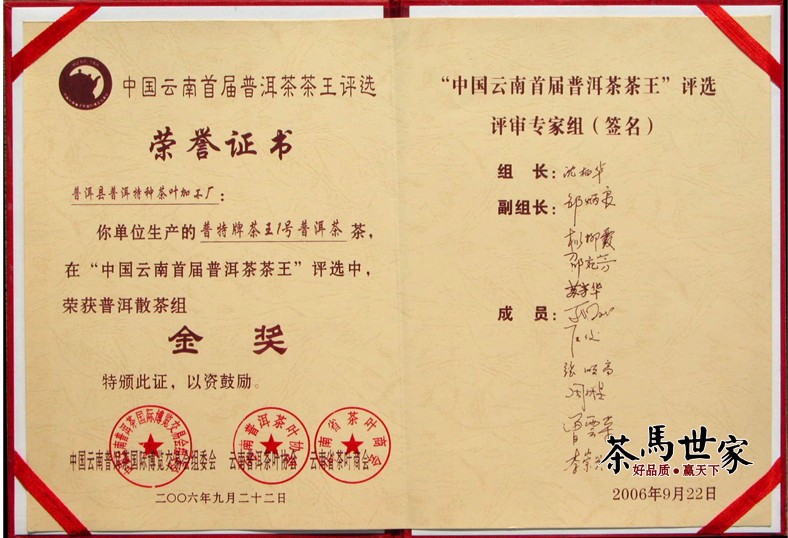 中国云南首届普洱茶茶王评选
荣誉证书
普洱县普洱特种茶叶加工厂：
你单位生产的普特牌茶王1号普洱茶茶，
在“中国云南首届普洱茶茶王”评选中，
荣获普洱散茶组
金奖
特颁此证，以资鼓励。
中国云南普洱茶国际博览交易会组委会 云南普洱茶叶协会 云南省茶叶商会
二〇〇六年九月二十二日
“中国云南首届普洱茶茶王”评选
评审专家组（签名）
组 长：
副组长：
成 员：
茶馬世家
好品质·赢天下
2006年9月22日